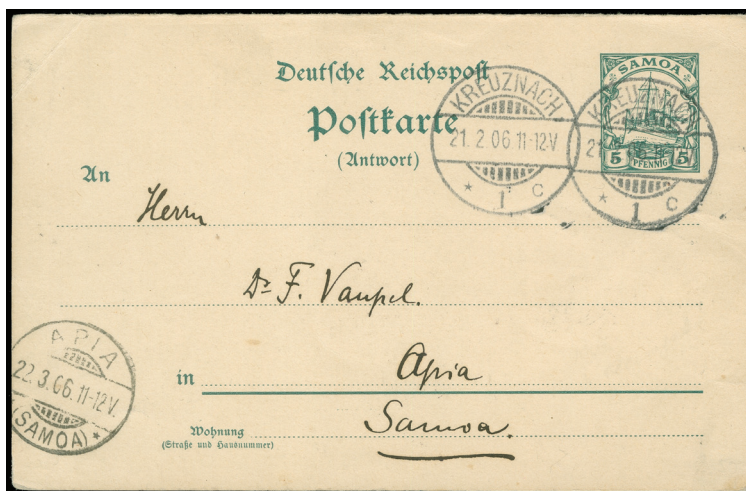 Deutsche Reichspost
Postkarte
(Antwort)
SAMOA
5 PFENNIG 5
KREUZNACH
21. 2. 06. 11-12V
* 1 c
KREUZNACH
21
* 1 c
An
Herrn
Dr F. Vaupel.
in Apia
Wohnung Samoa.
(Straße und Hausnummer)
APIA
22. 3. 06. 11-12V.
(SAMOA) *